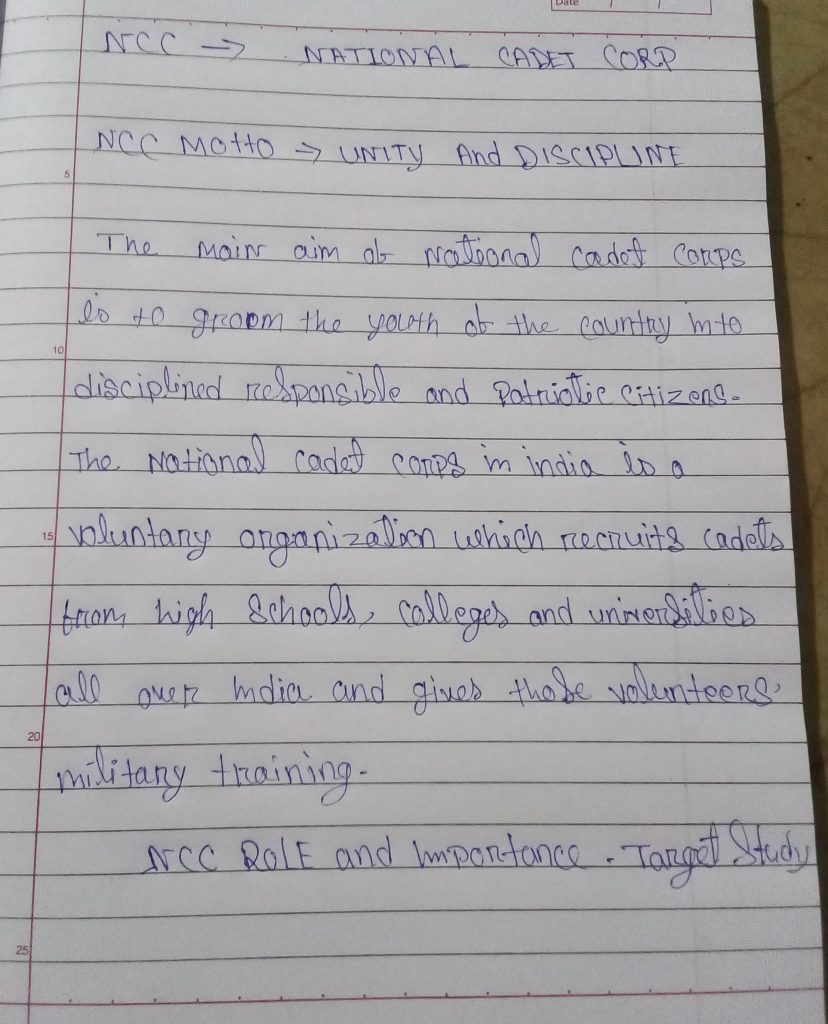 Date / /
NCC → NATIONAL CADET CORP
NCC MOTTO → UNITY And DISCIPLINE
5
The main aim of National cadet corps
is to groom the youth of the country into
10
disciplined responsible and Patriotic citizens.
The National cadet corps in india is a
15 voluntary organization which recruits cadets
from high Schools, colleges and universities
all over India and gives those volunteers
20
military training.
NCC ROLE and Importance - Target Study
25